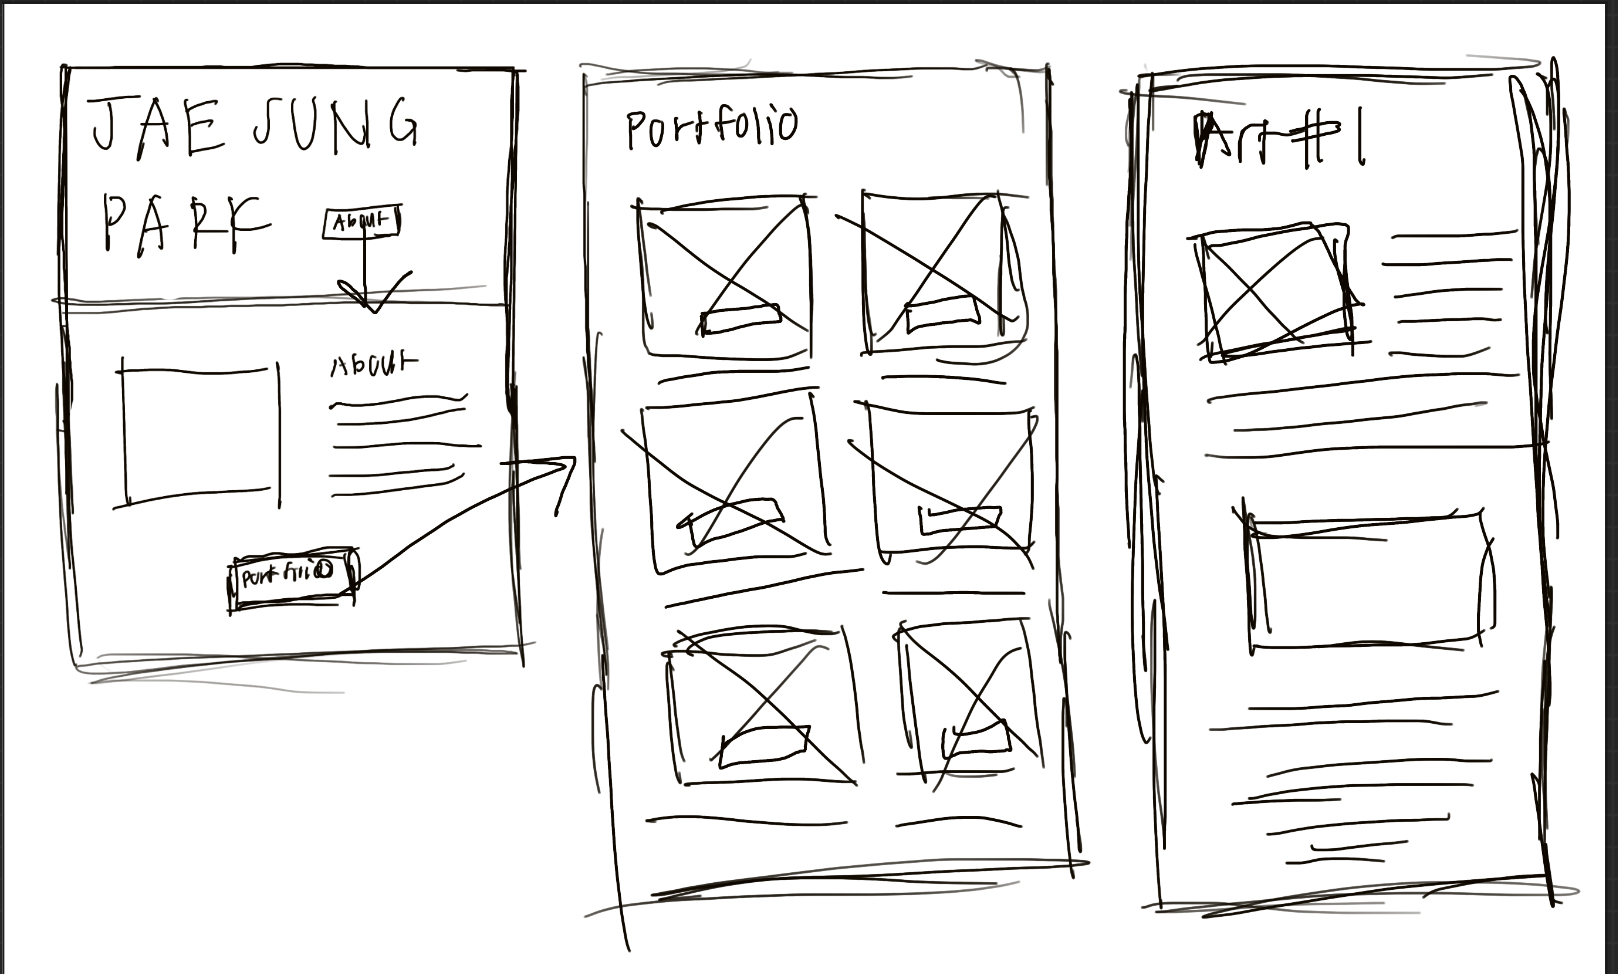 JAE SUNG
PARK
About
About
Portfolio
Portfolio
Art #1